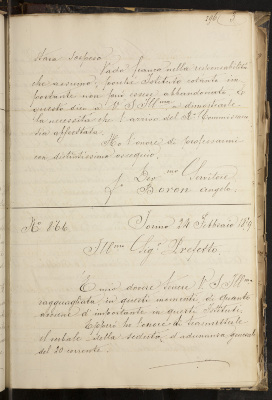 stato
Vado franco nella
che assumo, perchè Istituto cotanto im
portante non può essere abbandonato, e
questo dico a V. S. Ill.ma a dimostrarle
la necessità che l'arrivo del R.o Commissario
sia affrettato.
Ho l'onore di professarmi
con distintissimo ossequio,
Dev.mo Servitore
f.o Boron Angelo
N.o 166. 24 Febbraio
Ill.mo Sig.r Prefetto.
È mio dovere tenere V. S. Ill.ma
ragguagliata in questi momenti di quanto
avviene d'importante in questo Istituto.
Epperò ho l'onore di trasmetterle
il verbale della seduta d'adunanza generale
del 20 corrente.